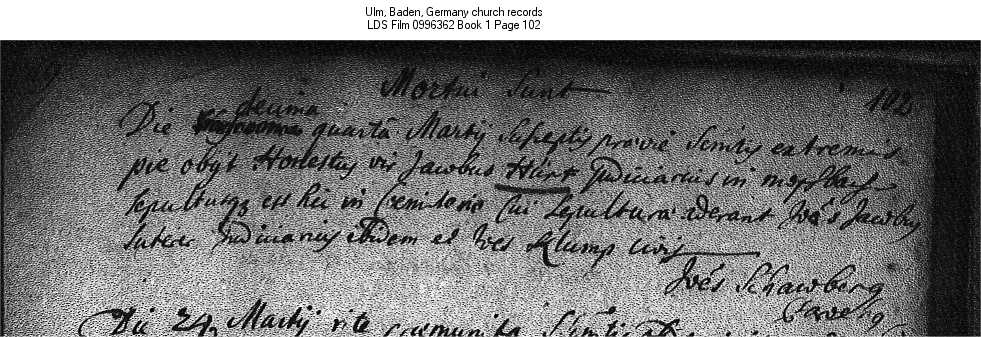 Ulm, Baden, Germany church records
LDS Film 0996362 Book 1 Page 102
Mortui Sunt
102
decima
Die quarta Martij susceptis provie Scintis extremis
pie obyt Honestus vir Jacobus Hürt Judiciarius in mospbach
sepultusq3 est hic in Cemiterio Cui Sepultura aderant Joës Jacobus
Suter Judiciarius ibidem et Joes Klump civis
Joës Schawberg
Die 24 Martij rite praemunita